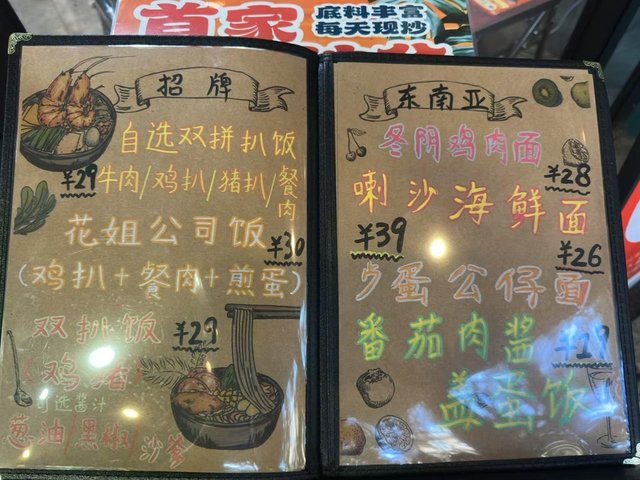 首家
底料丰富
每天现抄
招牌
自选双拼扒饭
牛肉/鸡扒/猪扒/餐肉
¥29
花姐公司饭
¥30
(鸡扒+餐肉+煎蛋)
双扒饭
¥29
鸡
可选酱汁
葱油/黑椒/沙爹
东南亚
冬阴鸡肉面
¥28
喇沙海鲜面
¥39
¥26
蛋公仔面
番茄肉酱
盖蛋饭